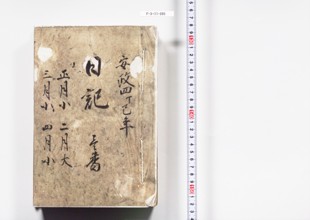 安政四丁巳年
日記 壱番
正月小 二月大
三月小 四月小